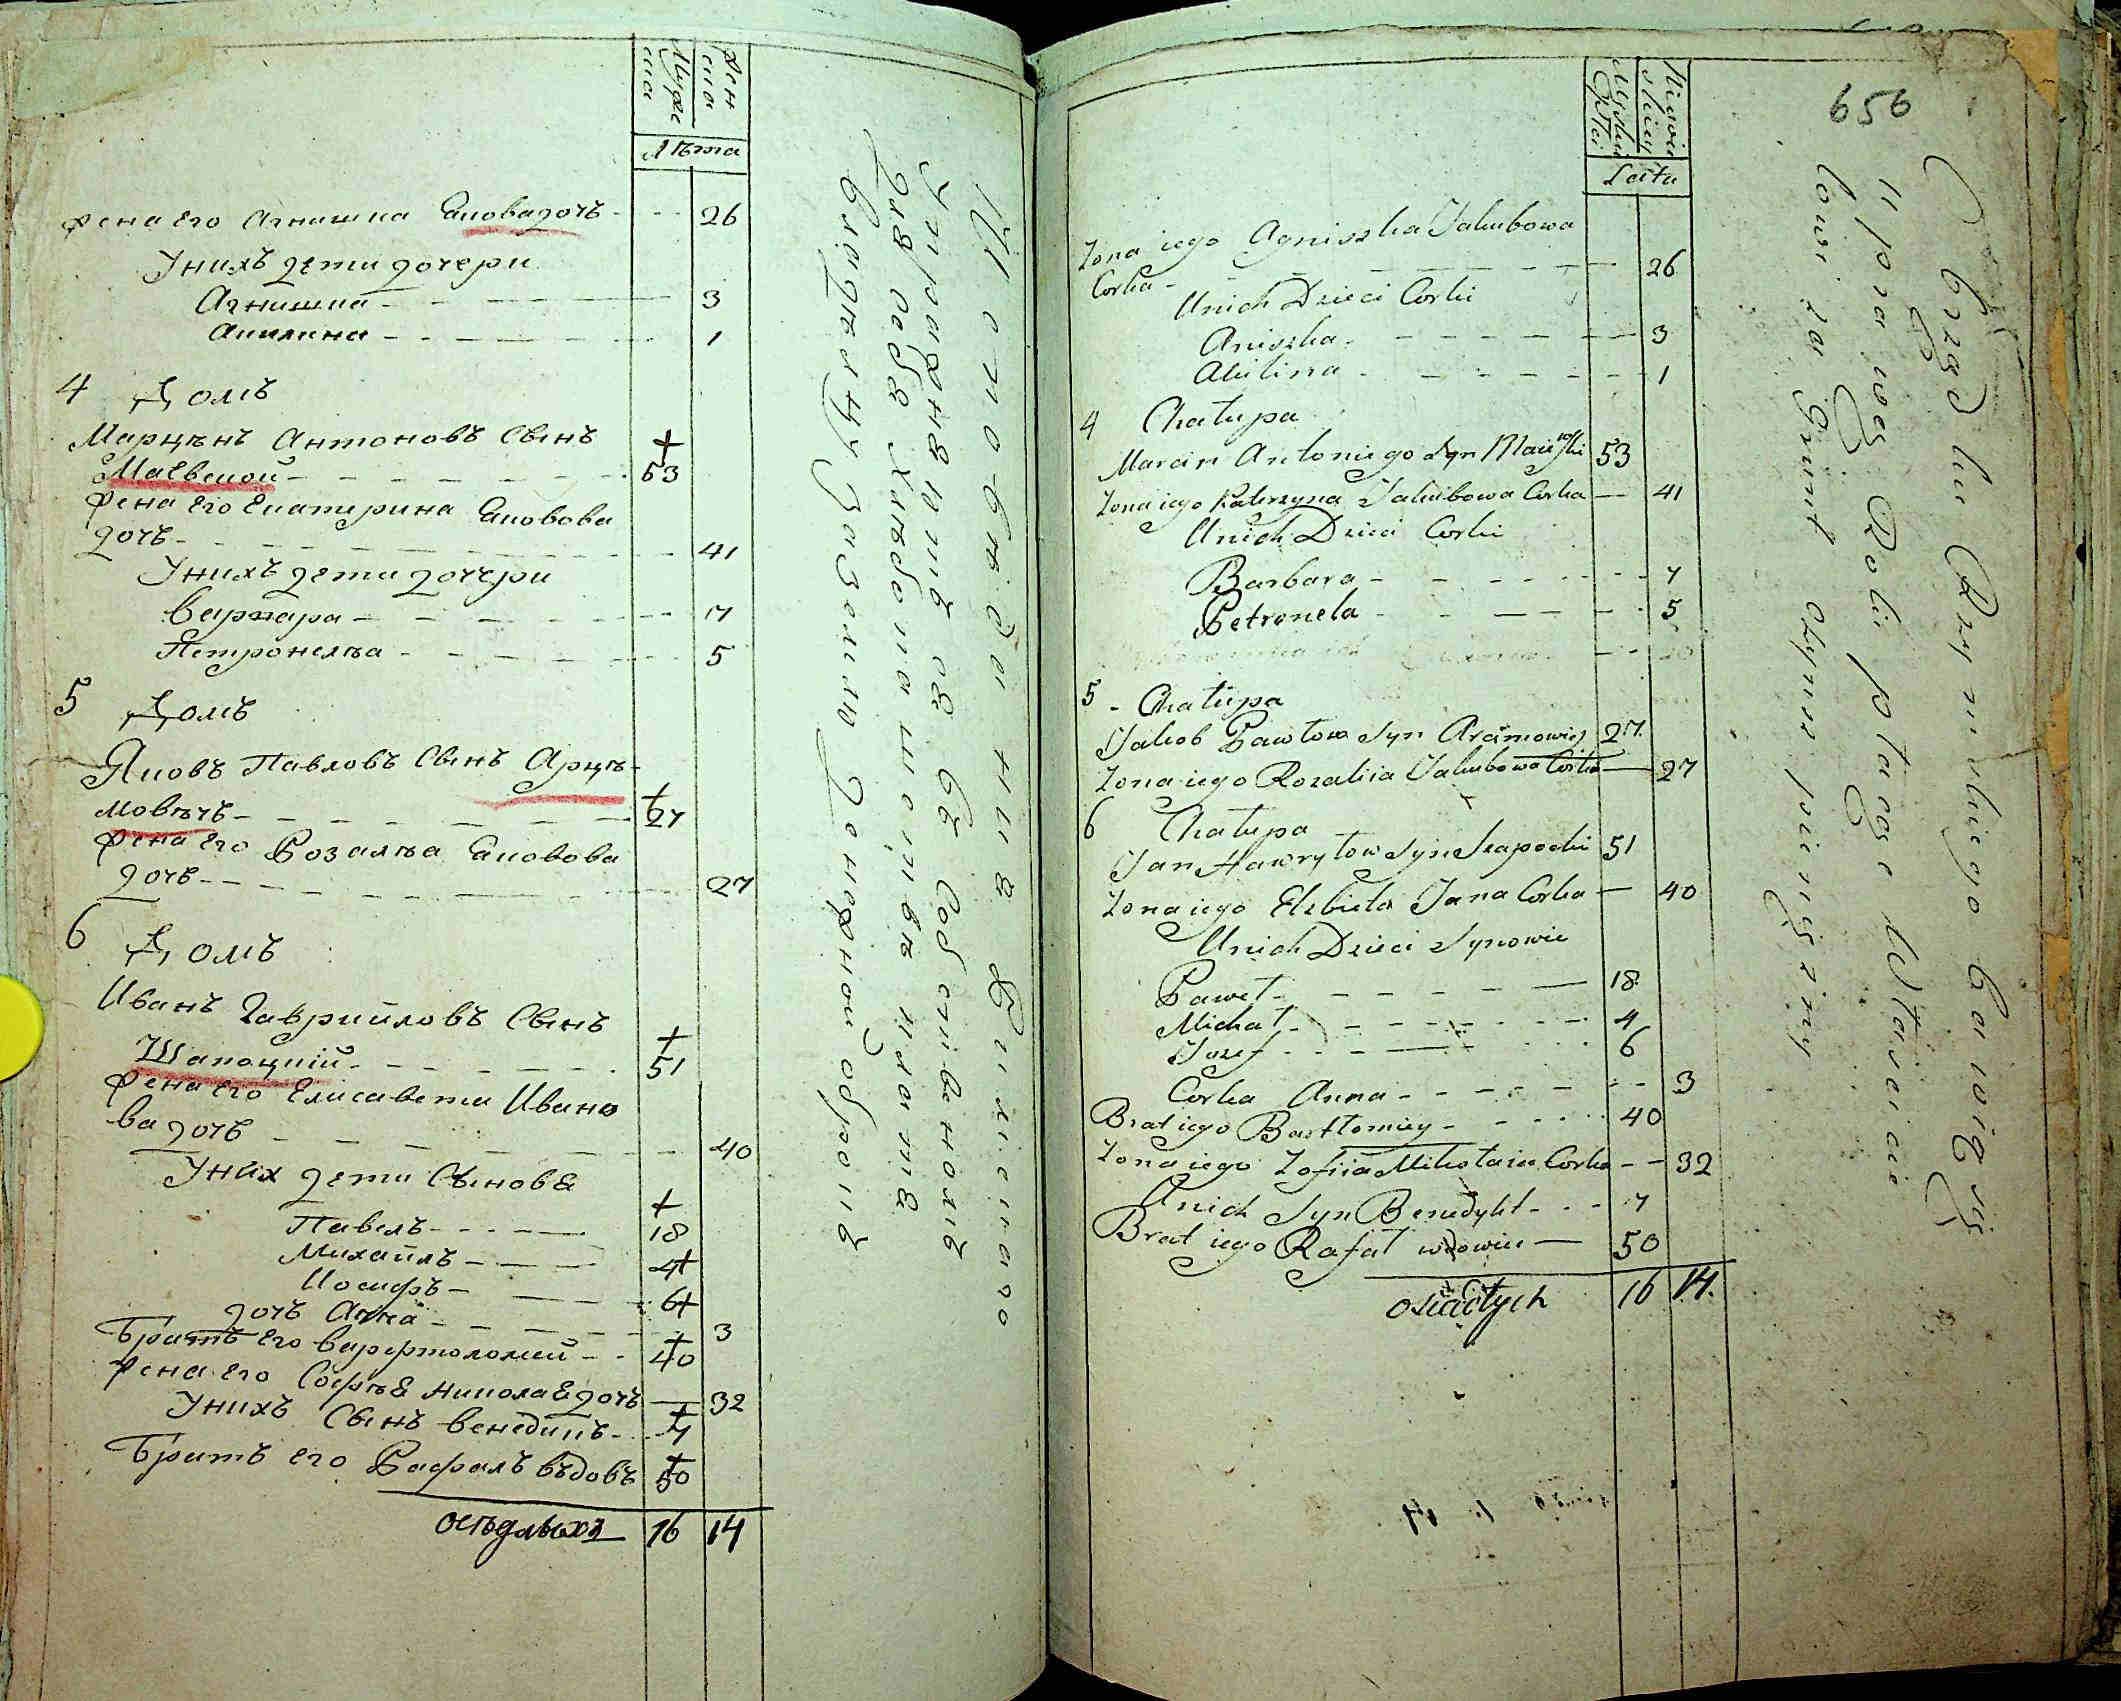 Муже
ска
Жен
ска
Лѣта
Жена его Агнишка Яковва дочь 26
У нихъ дети дочери
Агнишка 3
Акилина 1
4 Домъ
Марцинъ Антоновъ Сынъ
Маевской 53
Жена его Екатирина Яковова
дочь 41
У нихъ дети дочери
Варвара 7
Петронеля 5
5 Домъ
Яковъ Павловъ Сынъ Арци-
мовичъ 27
Жена его Розалія Яковова
дочь 27
6 Домъ
Иванъ Гаврийловъ Сынъ
Шапоцкій 51
Жена его Елисавета Ивано
ва дочь 40
У них дети Сыновя
Павелъ 18
Михайлъ 4
Иосифъ 6
дочь Анна 3
Братъ его Варфтоломей 40
Жена его Софія Никола дочь 32
У нихъ Сынъ Венедикъ 7
Братъ его Рафалъ вдовъ 50
оседлыхъ 16 14
для себя хлебопашествъ
владельцу за землю денежной оброкъ
656
Męskiej
Płci
Lata
Żona iego Agniszka Jakubowa
Corka 26
U nich Dzieci Corki
Aniszka 3
Akilina 1
4 Chałupa
Marcin Antoniego Syn Maiewski 53
Żona iego Katerzyna Jakubowa Corka 41
U nich Dzieci Corki
Barbara 7
Petronela 5
5 Chałupa
Jakob Pawłow Syn Arcimowicz 27
Żona iego Rozaliia Jakubowa Corka 27
6 Chałupa
Jan Hawryłow Syn Szapocki 51
Żona iego Elzbieta Jana Corka 40
U nich Dzieci Synowie
Paweł 18
Michał 4
Jozef 6
Corka Anna 3
Brat iego Bartłomiey 40
Żona iego Zofiia Mikołaia Corka 32
U nich Syn Benedykt 7
Brat iego Rafał wdowiec 50
osiadłych 16 14
uprawą Roli płacąc Właścicie
lowi za grunt czynsz pieniężny